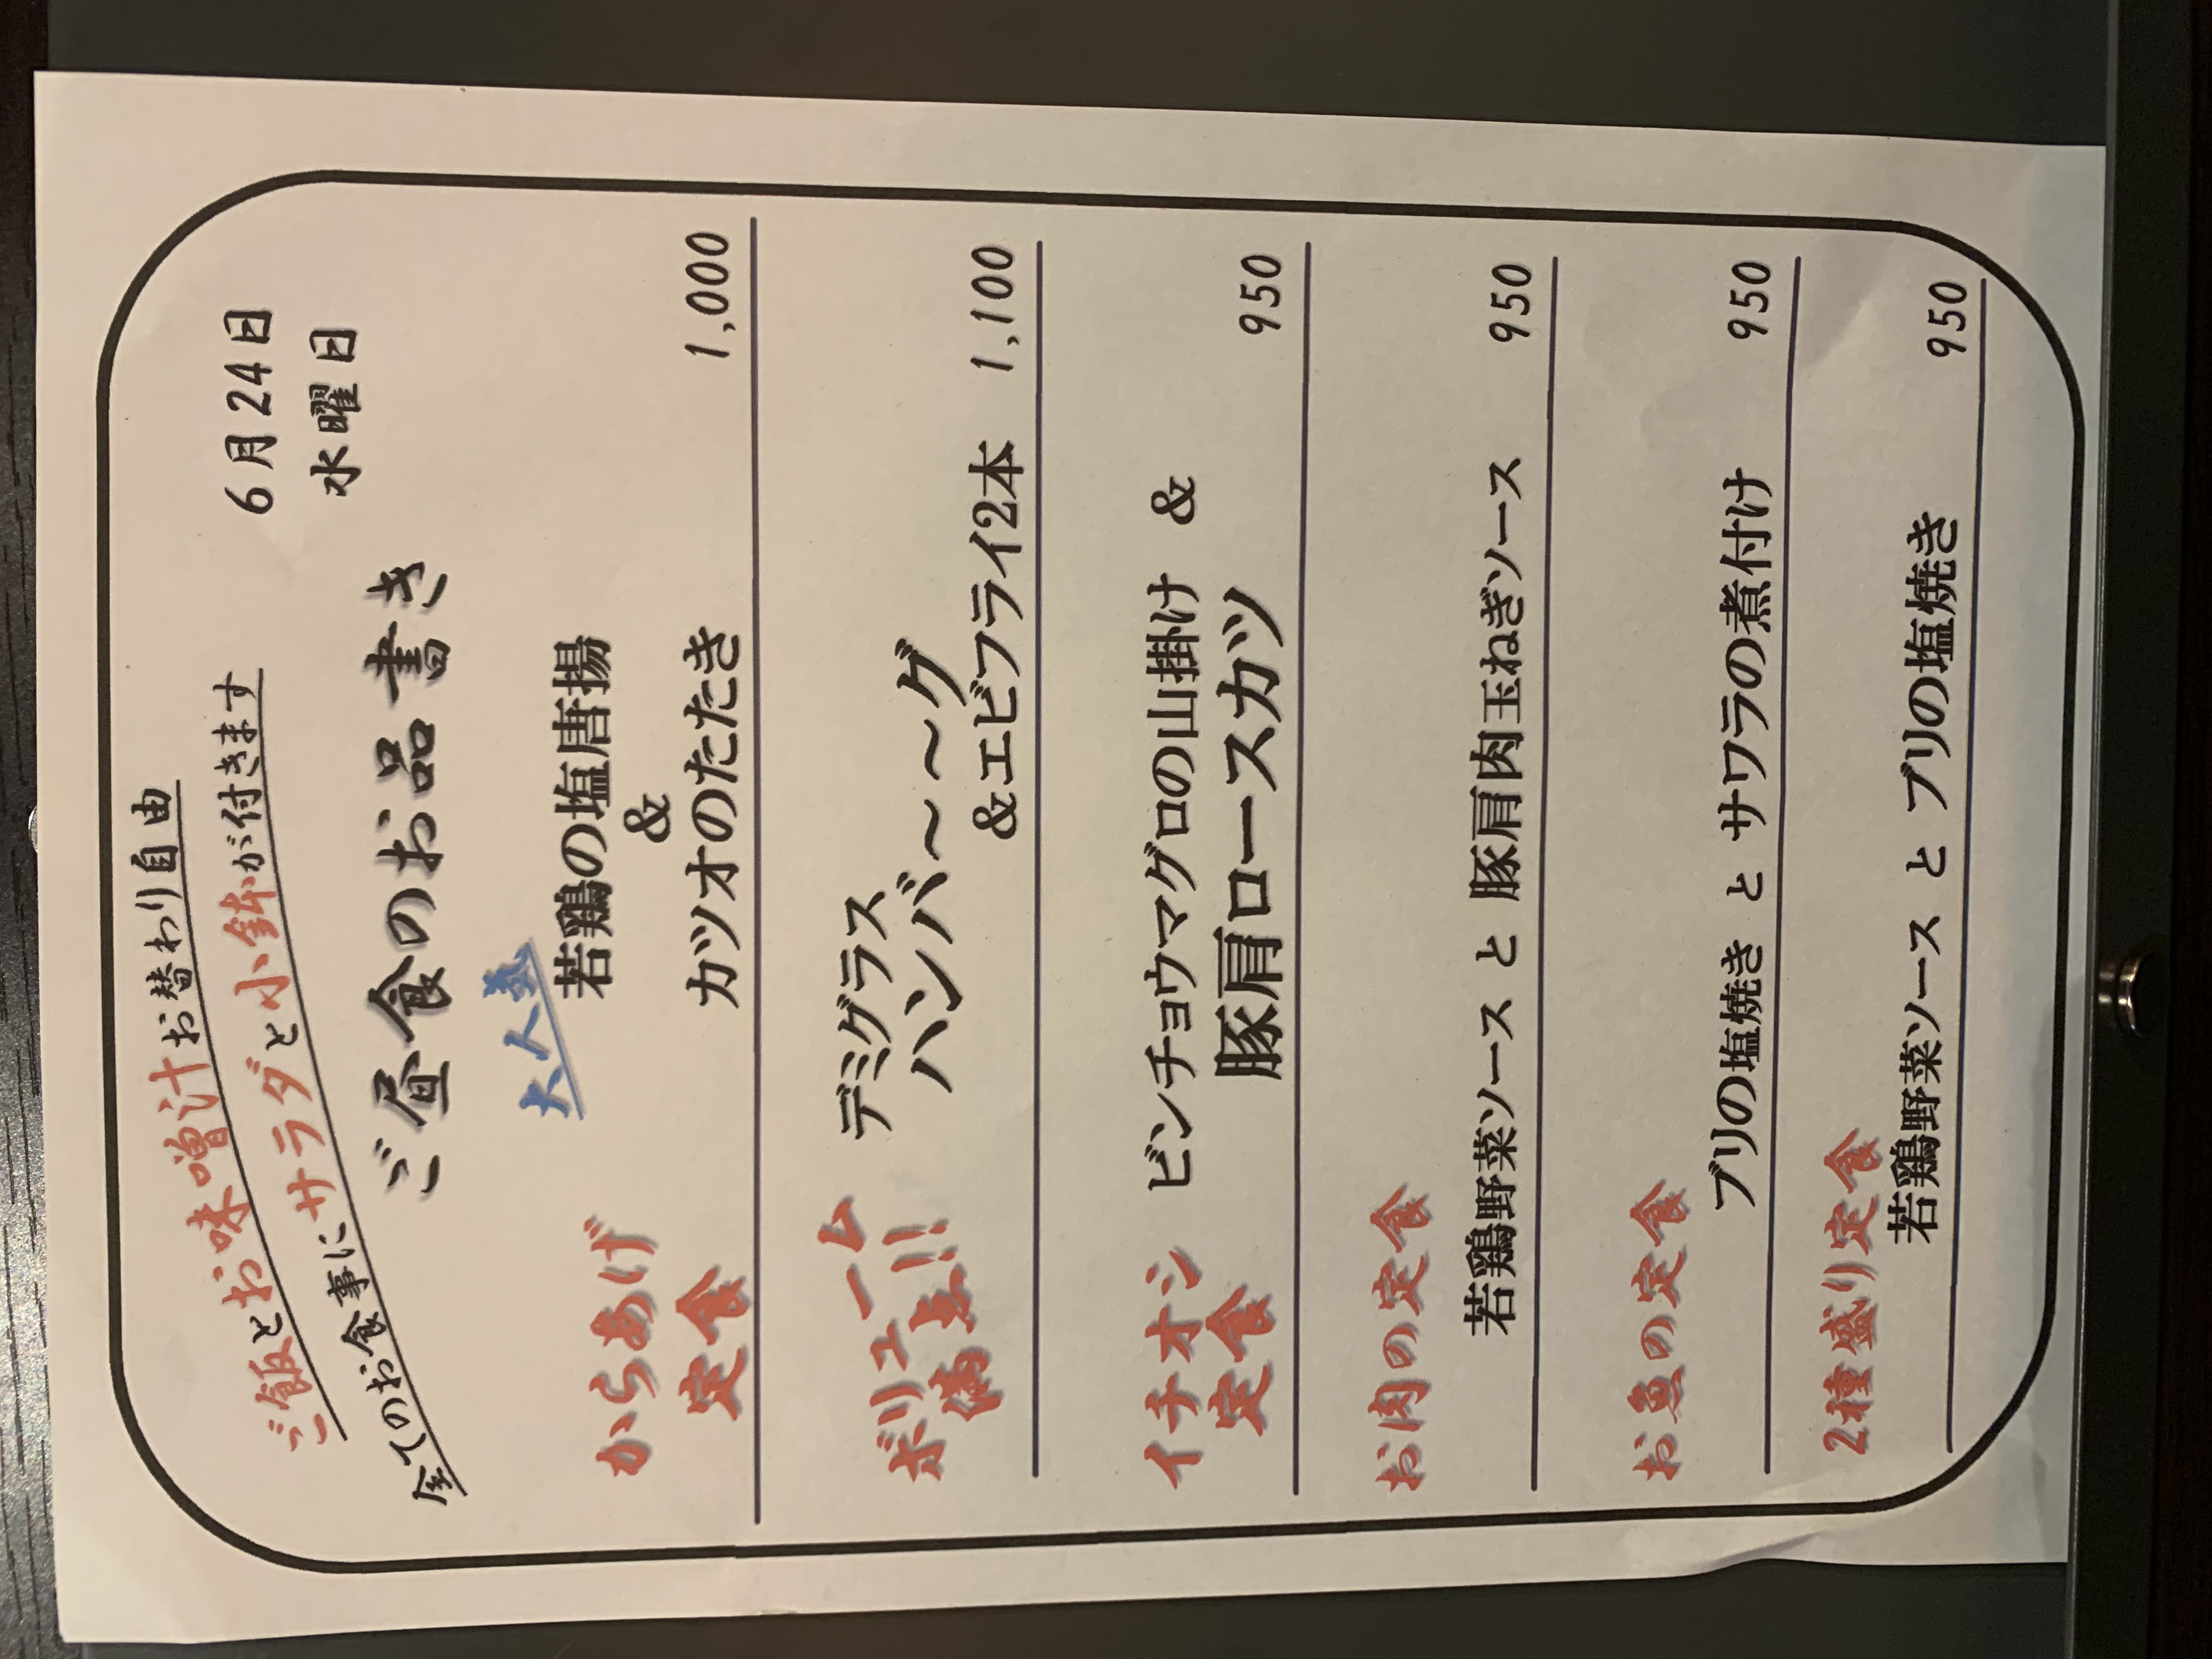 ご飯とお味噌汁お替わり自由
全てのお食事にサラダと小鉢が付きます
6月24日
水曜日
ご昼食のお品書き
大人気
からあげ
定食
若鶏の塩唐揚
&
カツオのたたき
1,000
ボリューム
満点!!
デミグラス
ハンバ～～～グ
&エビフライ2本
1,100
イチオシ
定食
ビンチョウマグロの山掛け &
豚肩ロースカツ
950
お肉の定食
若鶏野菜ソース と 豚肩肉玉ねぎソース
950
お魚の定食
ブリの塩焼き と サワラの煮付け
950
2種盛り定食
若鶏野菜ソース と ブリの塩焼き
950